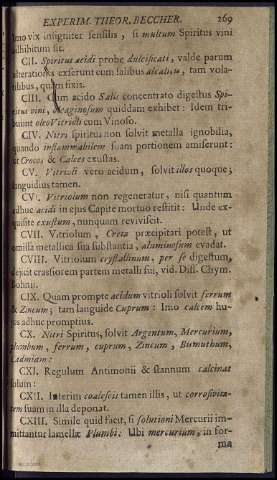 EXPERIM. THEOR. BECCHER. 269
imo vix insigniter sensilis, si multum Spiritus vini
adhibitum sit.
CII. Spiritus acidi probe dulcificati, valde parum
alterationis exserunt cum salibus alcalicis, tam vola-
tilibus, quam fixis.
CIII. Cum acido Salis concentrato digestus Spi-
ritus vini, oleaginosum quiddam exhibet: Idem tri-
buunt oleo Vitrioli cum Vinoso.
CIV. Nitri spiritus non solvit metalla ignobilia,
quando inflammabilem suam portionem amiserunt:
ut Crocos & Calces exustas.
CV. Vitrioli vero acidum, solvit illos quoque;
languidius tamen.
CVI. Vitriolum non regeneratur, nisi quantum
adhuc acidi in ejus Capite mortuo restitit: Unde ex-
quisite exustum, nunquam reviviscit.
CVII. Vitriolum, Creta præcipitari potest, ut
omissa metallica sua substantia, aluminosum evadat.
CVIII. Vitriolum crystallinum, per se digestum,
dejicit crassiorem partem metalli sui, vid. Diss. Chym.
Bohnii.
CIX. Quam prompte acidum vitrioli solvit ferrum
& Zincum; tam languide Cuprum: Imo calcem hu-
jus adhuc promptius.
CX. Nitri Spiritus, solvit Argentum, Mercurium,
plumbum, ferrum, cuprum, Zincum, Bismuthum,
Cadmiam:
CXI. Regulum Antimonii & stannum calcinat
solum:
CXII. Interim coalescit tamen illis, ut corrosivita-
tem suam in illa deponat.
CXIII. Simile quid facit, si solutioni Mercurii im-
mittantur lamellæ Plumbi: Ubi mercurium, in for-
ma